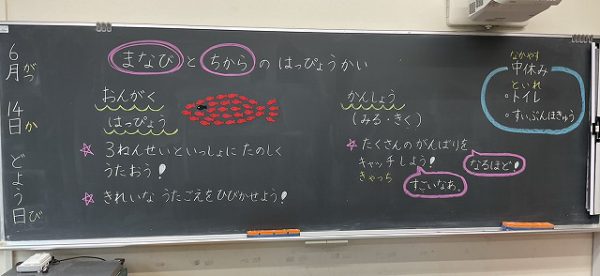 6月 14日 どよう日
がつ か び
まなび と ちから の はっぴょうかい
おんがく
はっぴょう
☆ 3ねんせいといっしょに たのしく
うたおう!
☆ きれいな うたごえをひびかせよう!
かんしょう
(みる・きく)
☆ たくさんの がんばりを
キャッチしよう!
きゃっち
なるほど!
すごいなあ。
なかやす
中休み
といれ
・トイレ
・すいぶんほきゅう